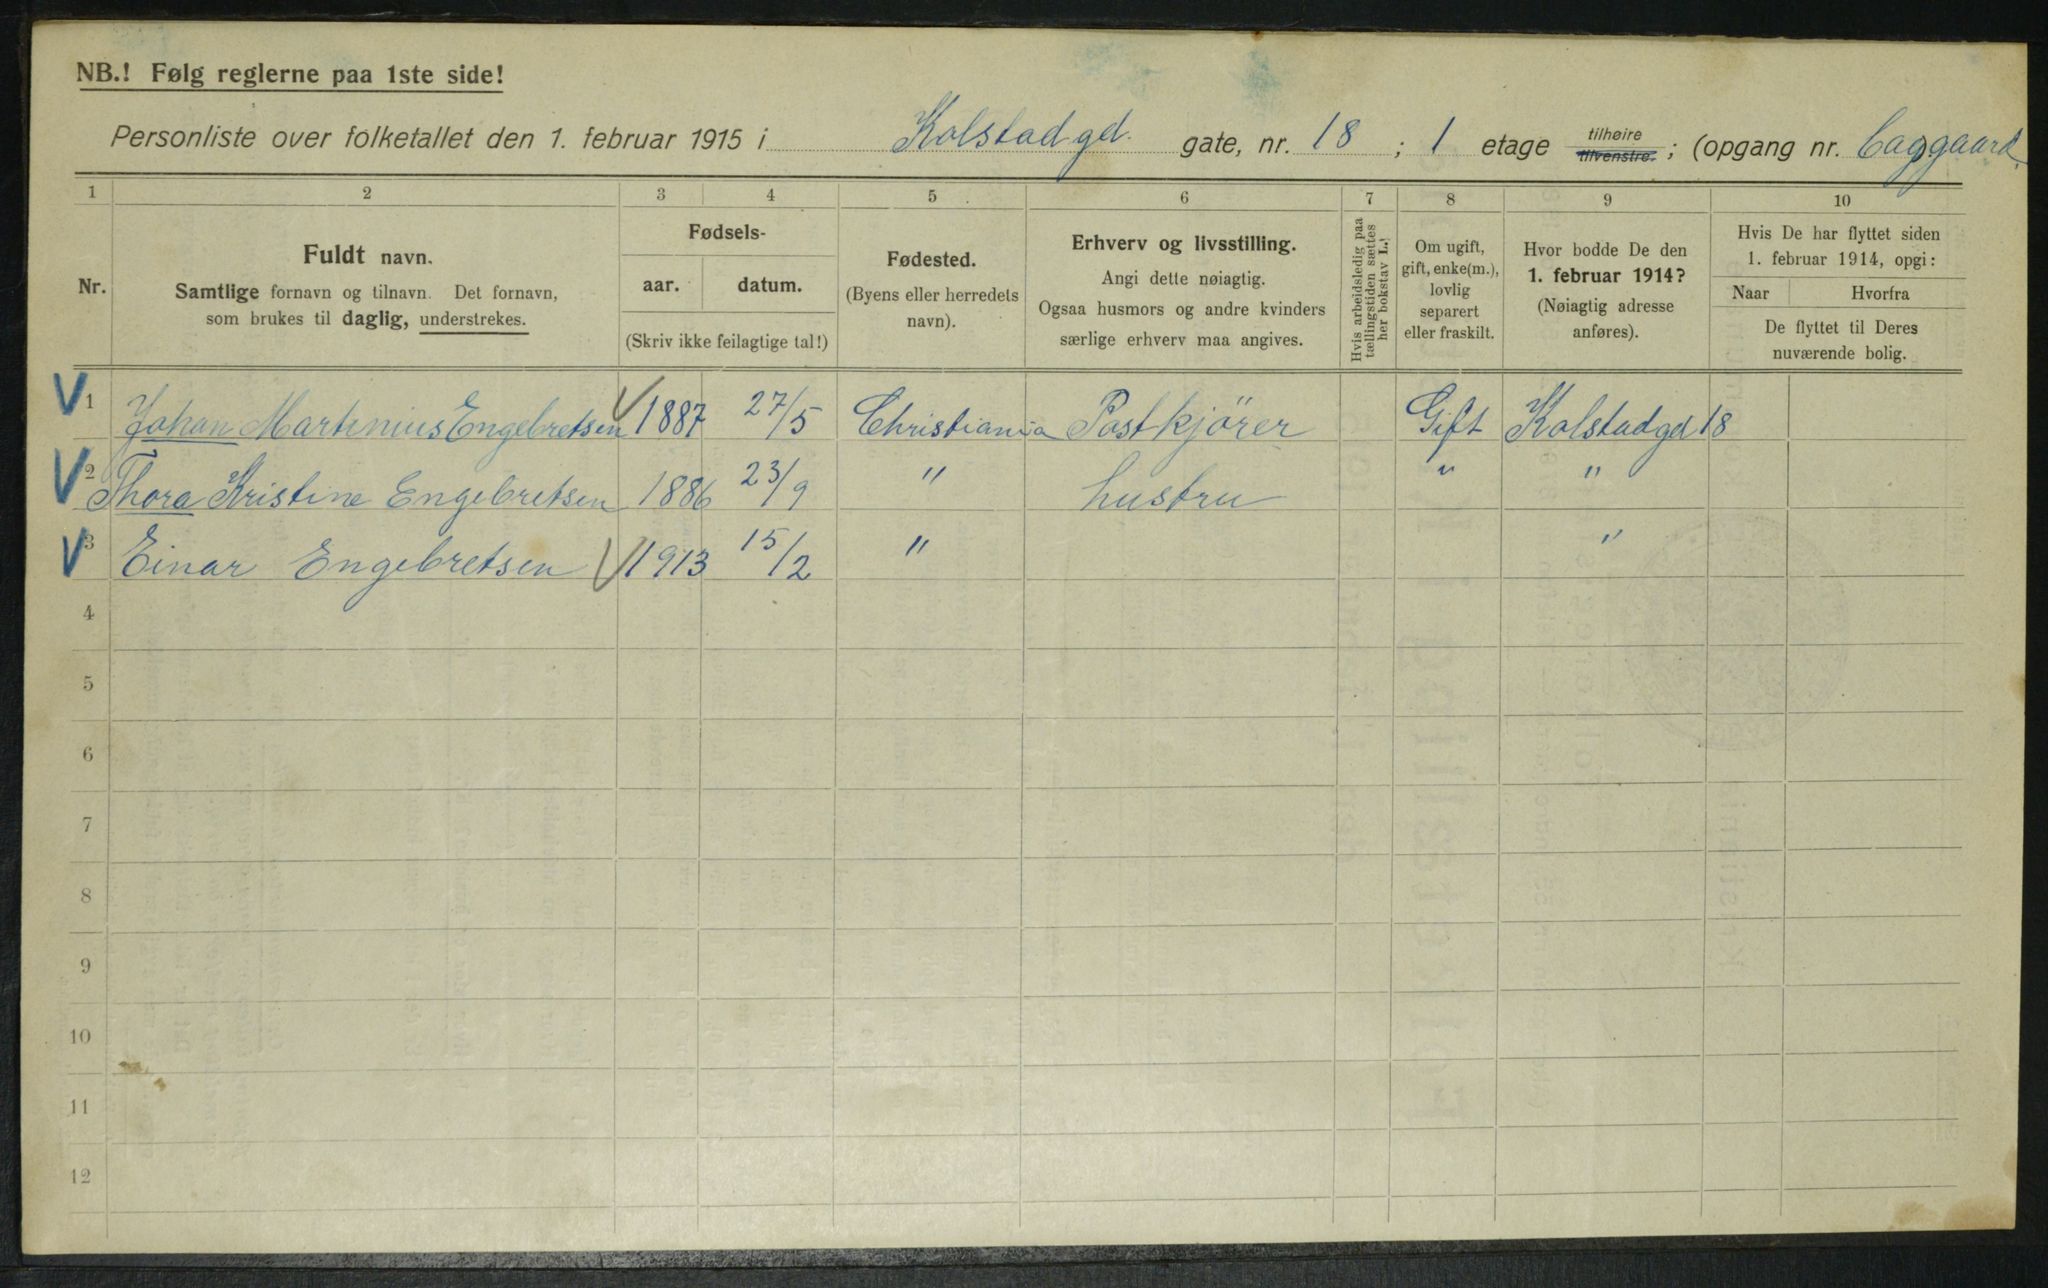 NB.! Følg reglerne paa 1ste side!
Personliste over folketallet den 1. februar 1915 i Kolstadgd. gate, nr. 18 ; 1 etage tilhøire tilvenstre. ; (opgang nr.
1 2 3 4 5 6 7 8 9 10
Nr.
Fuldt navn.
Samtlige fornavn og tilnavn. Det fornavn,
som brukes til daglig, understrekes.
Fødsels-
aar. datum.
(Skriv ikke feilagtige tal!)
Fødested.
(Byens eller herredets
navn).
Erhverv og livsstilling.
Angi dette nøiagtig.
Ogsaa husmors og andre kvinders
særlige erhverv maa angives.
Hvis arbeidsledig paa
tællingstiden sættes
her bokstav L.!
Om ugift,
gift, enke(m.),
lovlig
separert
eller fraskilt.
Hvor bodde De den
1. februar 1914?
(Nøiagtig adresse
anføres).
Hvis De har flyttet siden
1. februar 1914, opgi:
Naar Hvorfra
De flyttet til Deres
nuværende bolig.
1 Johan Martinius Engebretsen 1887 27/5 Christiania Postkjörer Gift Kolstadgd 18
2 Thora Kristine Engebretsen 1886 23/9 " hustru " "
3 Einar Engebretsen 1913 15/2 " "
4
5
6
7
8
9
10
11
12